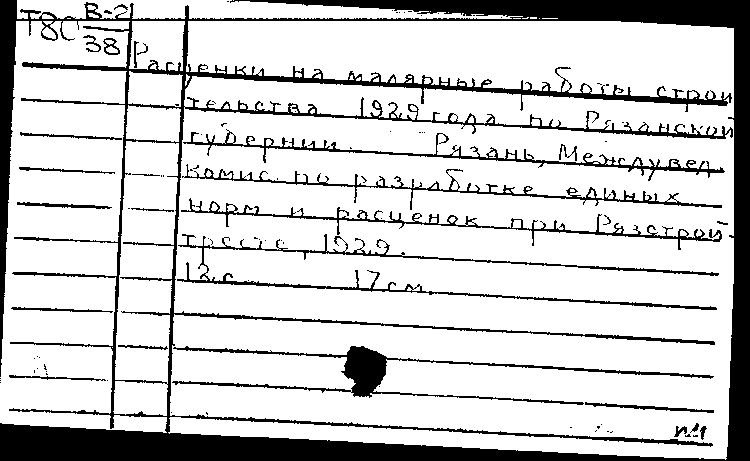 Т80 В-2/38
Расценки на малярные работы строи
тельства 1929 года по Рязанской
губернии. Рязань, Междувед.
комис. по разработке единых
норм и расценок при Рязстрой-
тресте, 1929.
12 с. 17 см.